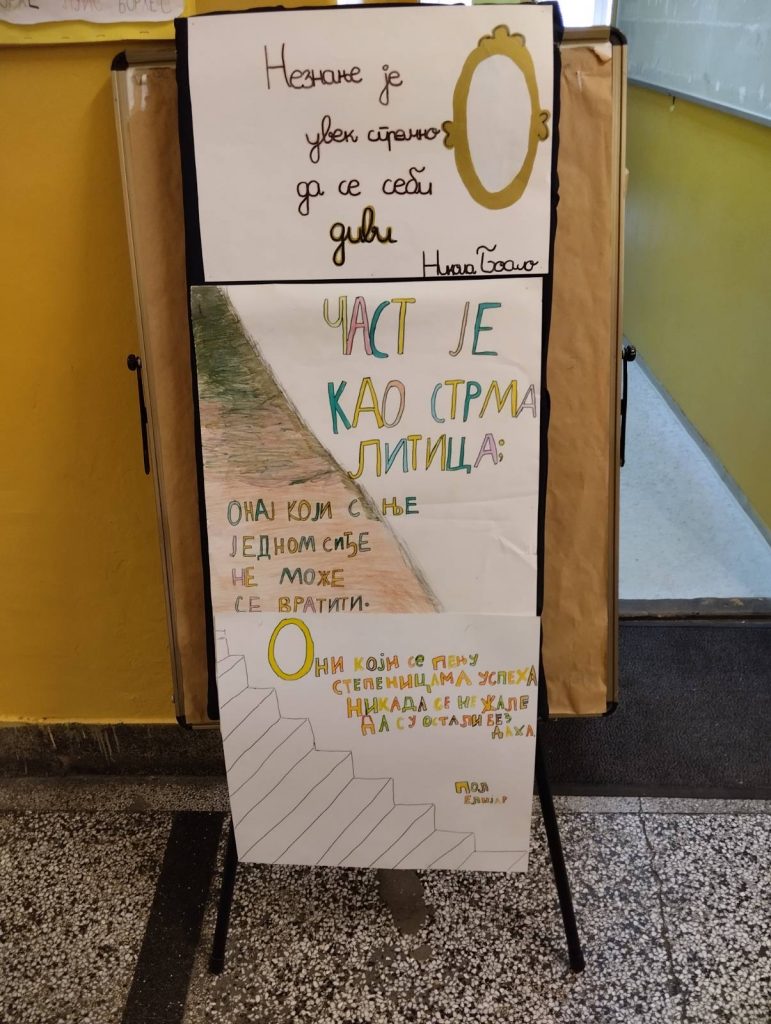 ЛУИС БОРХЕС
Незнање је
увек спремно
да се себи
диви
Никола Боало
ЧАСТ ЈЕ
КАО СТРМА
ЛИТИЦА;
ОНАЈ КОЈИ С ЊЕ
ЈЕДНОМ СИЂЕ
НЕ МОЖЕ
СЕ ВРАТИТИ.
ОНИ КОЈИ СЕ ПЕЊУ
СТЕПЕНИЦАМА УСПЕХА
НИКАДА СЕ НЕ ЖАЛЕ
ДА СУ ОСТАЛИ БЕЗ
ДАХА.
ПОЛ
ЕЛИЈАР